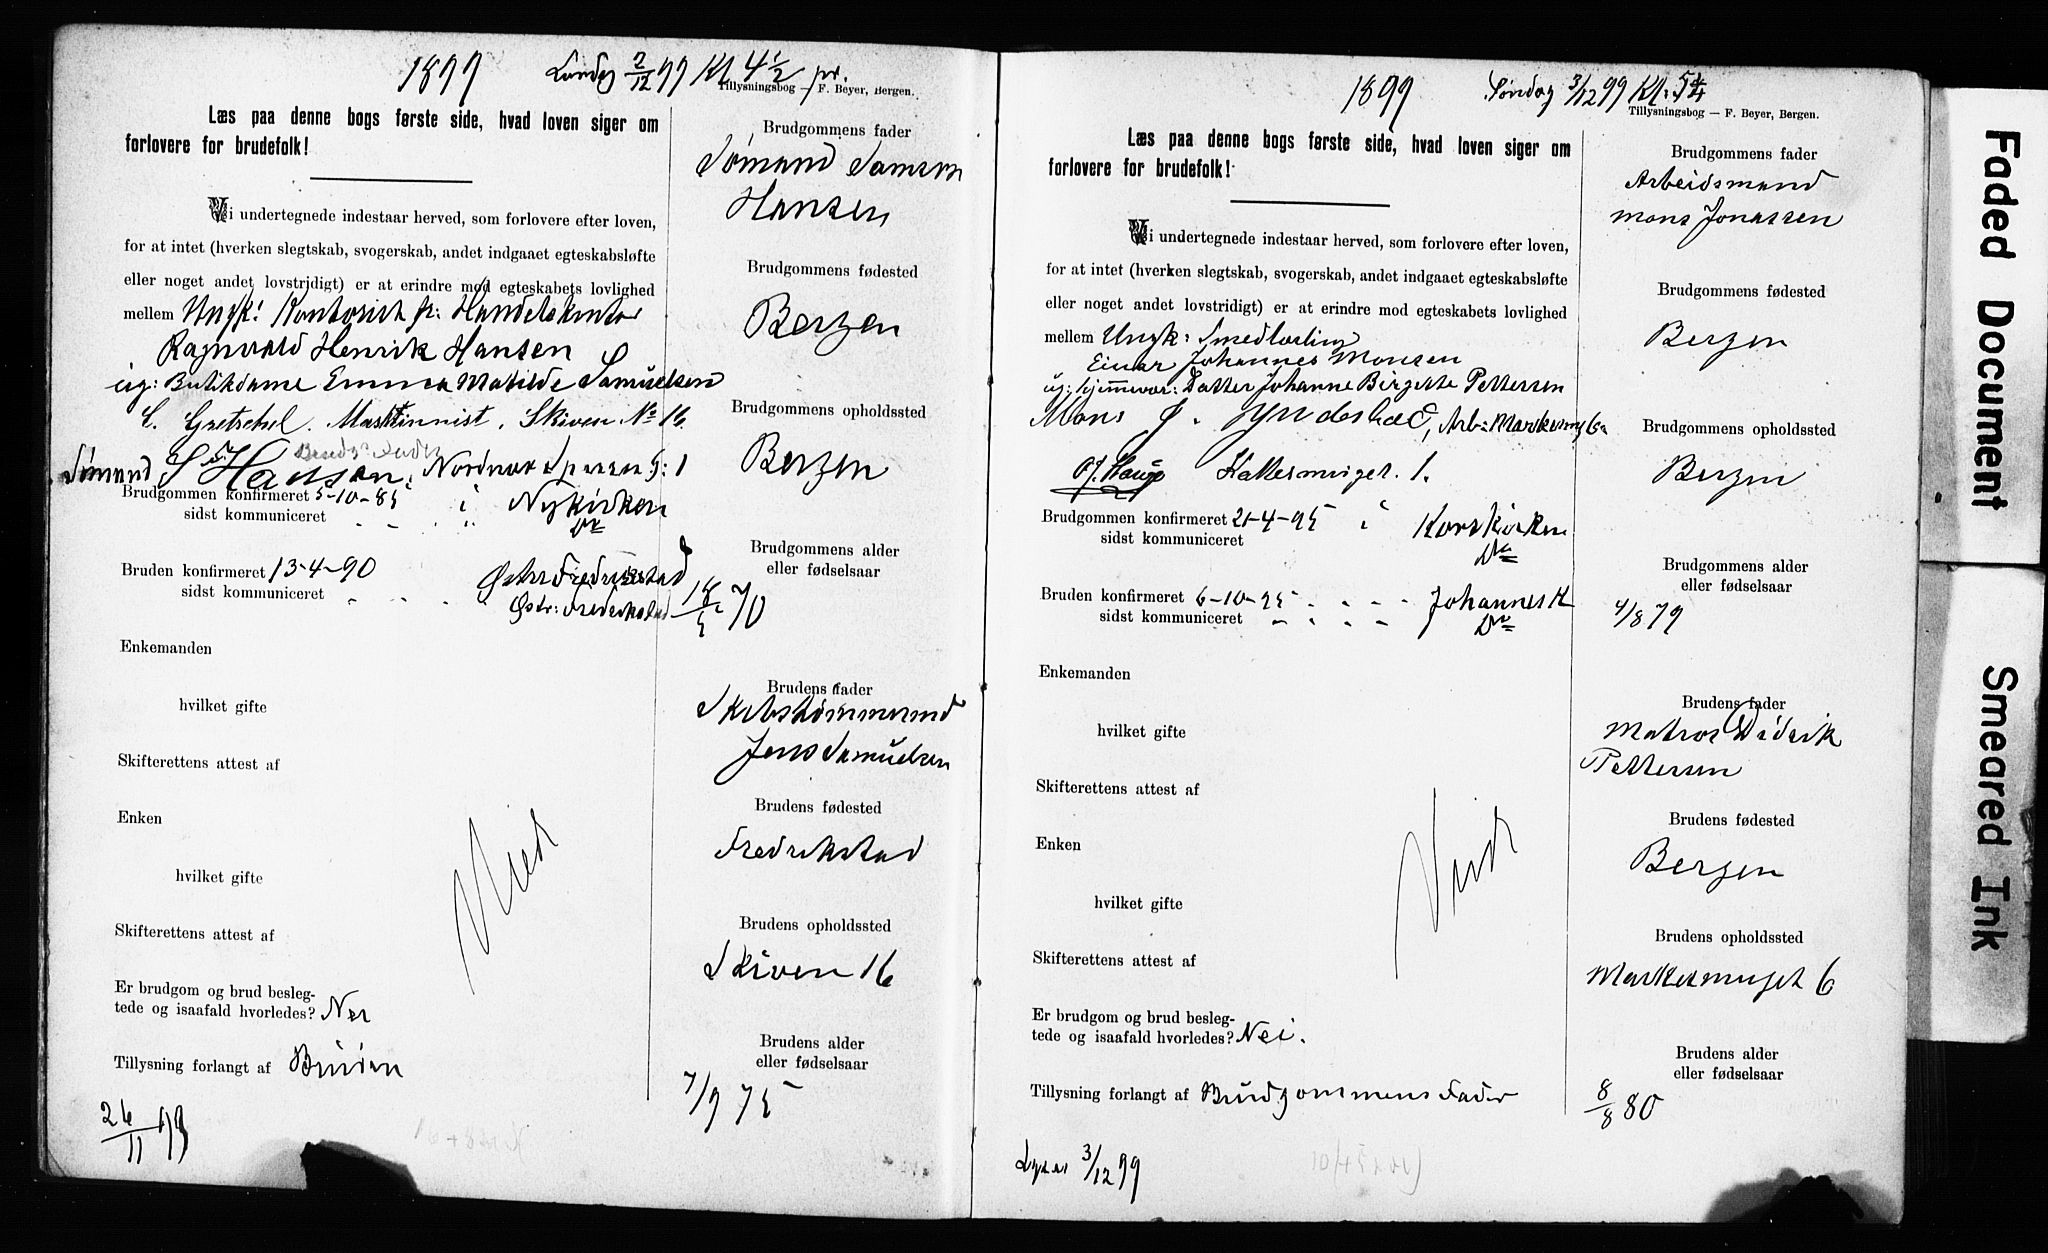 1899 Lørdag 2/12 99 Kl 4 1/2 pr.
Tillysningsbog — F. Beyer, Bergen.
Læs paa denne bogs første side, hvad loven siger om
forlovere for brudefolk!
Vi undertegnede indestaar herved, som forlovere efter loven,
for at intet (hverken slegtskab, svogerskab, andet indgaaet egteskabsløfte
eller noget andet lovstridigt) er at erindre mod egteskabets lovlighed
mellem Ungk: Kontorist
Ragnvald Henrik Hansen
Butikdame Emma Matilde Samuelsen
Gretschel. Maskinnist. Skiven No 16.
Sømand Hansen, Nordnæs
Brudgommen konfirmeret 5-10-85 i Nykirken
sidst kommuniceret Do
Bruden konfirmeret 13-4-90 Østre Fredrikstad
sidst kommuniceret Østr: Fredrikstad
Enkemanden
hvilket gifte
Skifterettens attest af
Enken
hvilket gifte
Skifterettens attest af
Er brudgom og brud besleg-
tede og isaafald hvorledes? Nei
Tillysning forlangt af Bruden
26/11 99
Viet
Brudgommens fader
Sømand Samson
Hansen
Brudgommens fødested
Bergen
Brudgommens opholdssted
Bergen
Brudgommens alder
eller fødselsaar
18/5 70
Brudens fader
Skibstømmermd
Jens Samuelsen
Brudens fødested
Fredrikstad
Brudens opholdssted
Skiven 16
Brudens alder
eller fødselsaar
7/9 75
1899 Søndag 3/12 99 Kl. 5 1/4
Tillysningsbog — F. Beyer, Bergen.
Læs paa denne bogs første side, hvad loven siger om
forlovere for brudefolk!
Vi undertegnede indestaar herved, som forlovere efter loven,
for at intet (hverken slegtskab, svogerskab, andet indgaaet egteskabsløfte
eller noget andet lovstridigt) er at erindre mod egteskabets lovlighed
mellem Ungk: Smedlærling
Einar Johannes Monsen
ug: hjemmevær: Datter Johanne Birgitte Pettersen
Mons J. Arb:
Haug 1.
Brudgommen konfirmeret 21-4-95 i Korskirken
sidst kommuniceret Do
Bruden konfirmeret 6-10-95 JohannesK
sidst kommuniceret Do
Enkemanden
hvilket gifte
Skifterettens attest af
Enken
hvilket gifte
Skifterettens attest af
Er brudgom og brud besleg-
tede og isaafald hvorledes? Nei.
Tillysning forlangt af Brudgommens Fader
Lyses 3/12 99
Viet
Brudgommens fader
Arbeidsmand
Mons Jonassen
Brudgommens fødested
Bergen
Brudgommens opholdssted
Bergen
Brudgommens alder
eller fødselsaar
4/8 79
Brudens fader
Matros Didrik
Pettersen
Brudens fødested
Bergen
Brudens opholdssted
Markesmuget 6
Brudens alder
eller fødselsaar
8/8 80
Faded Document
Smeared Ink